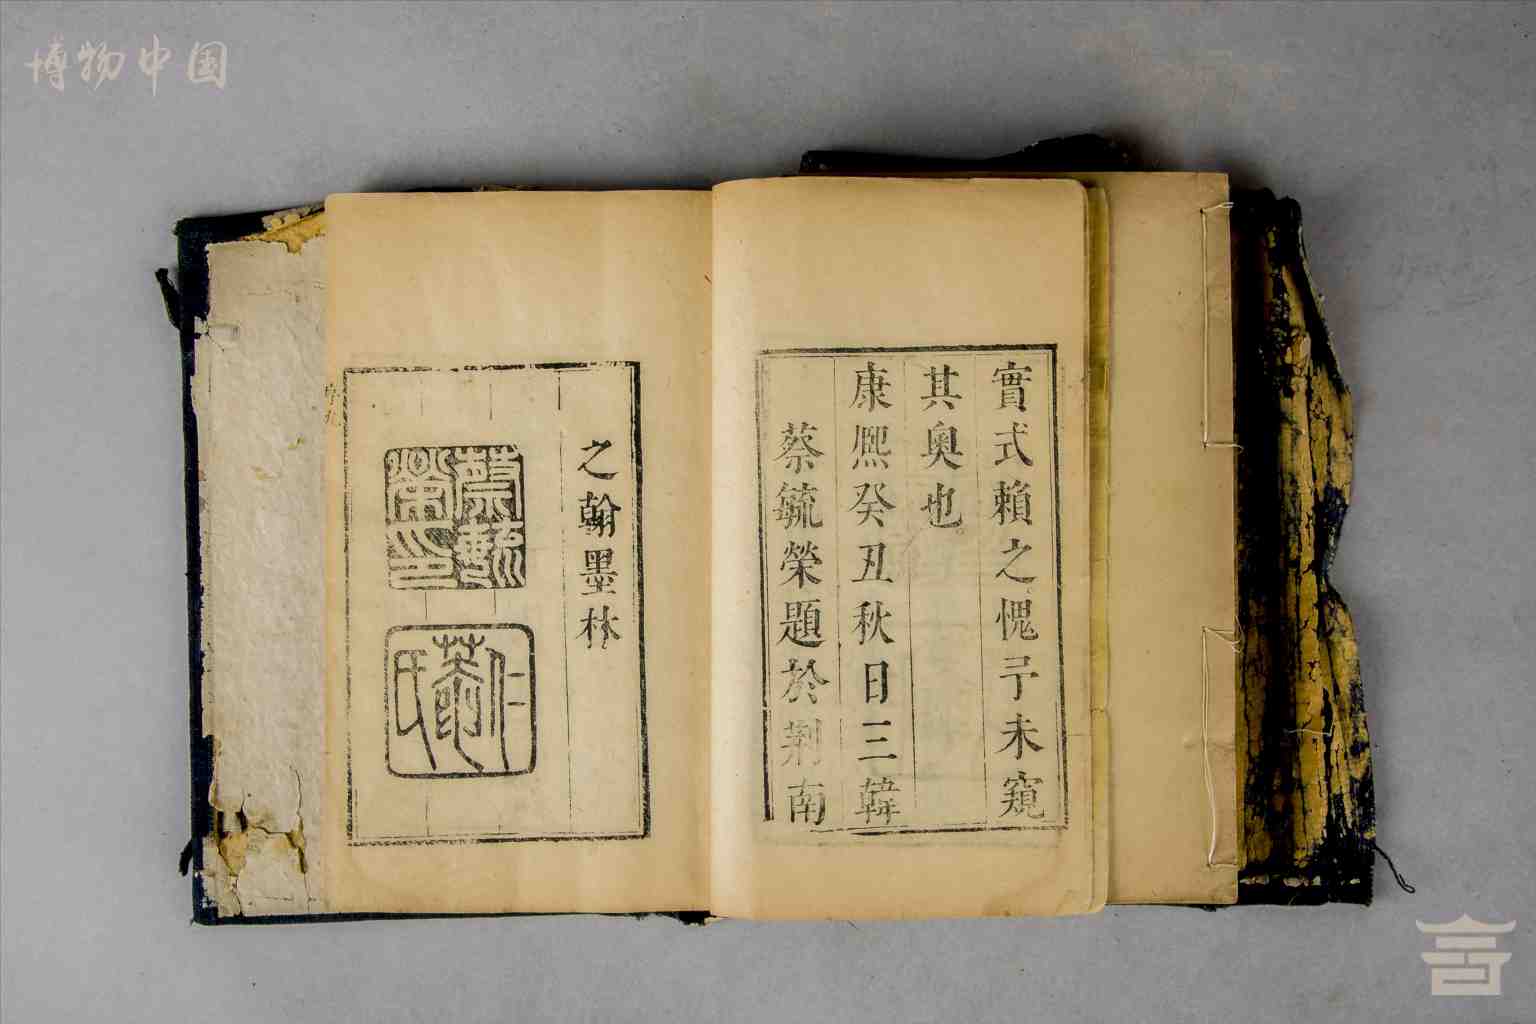 博物中国
實式賴之愧予未窺
其奧也
康熙癸丑秋日三韓
蔡毓榮題於荆南
之翰墨林
蔡毓榮印
仁菴氏